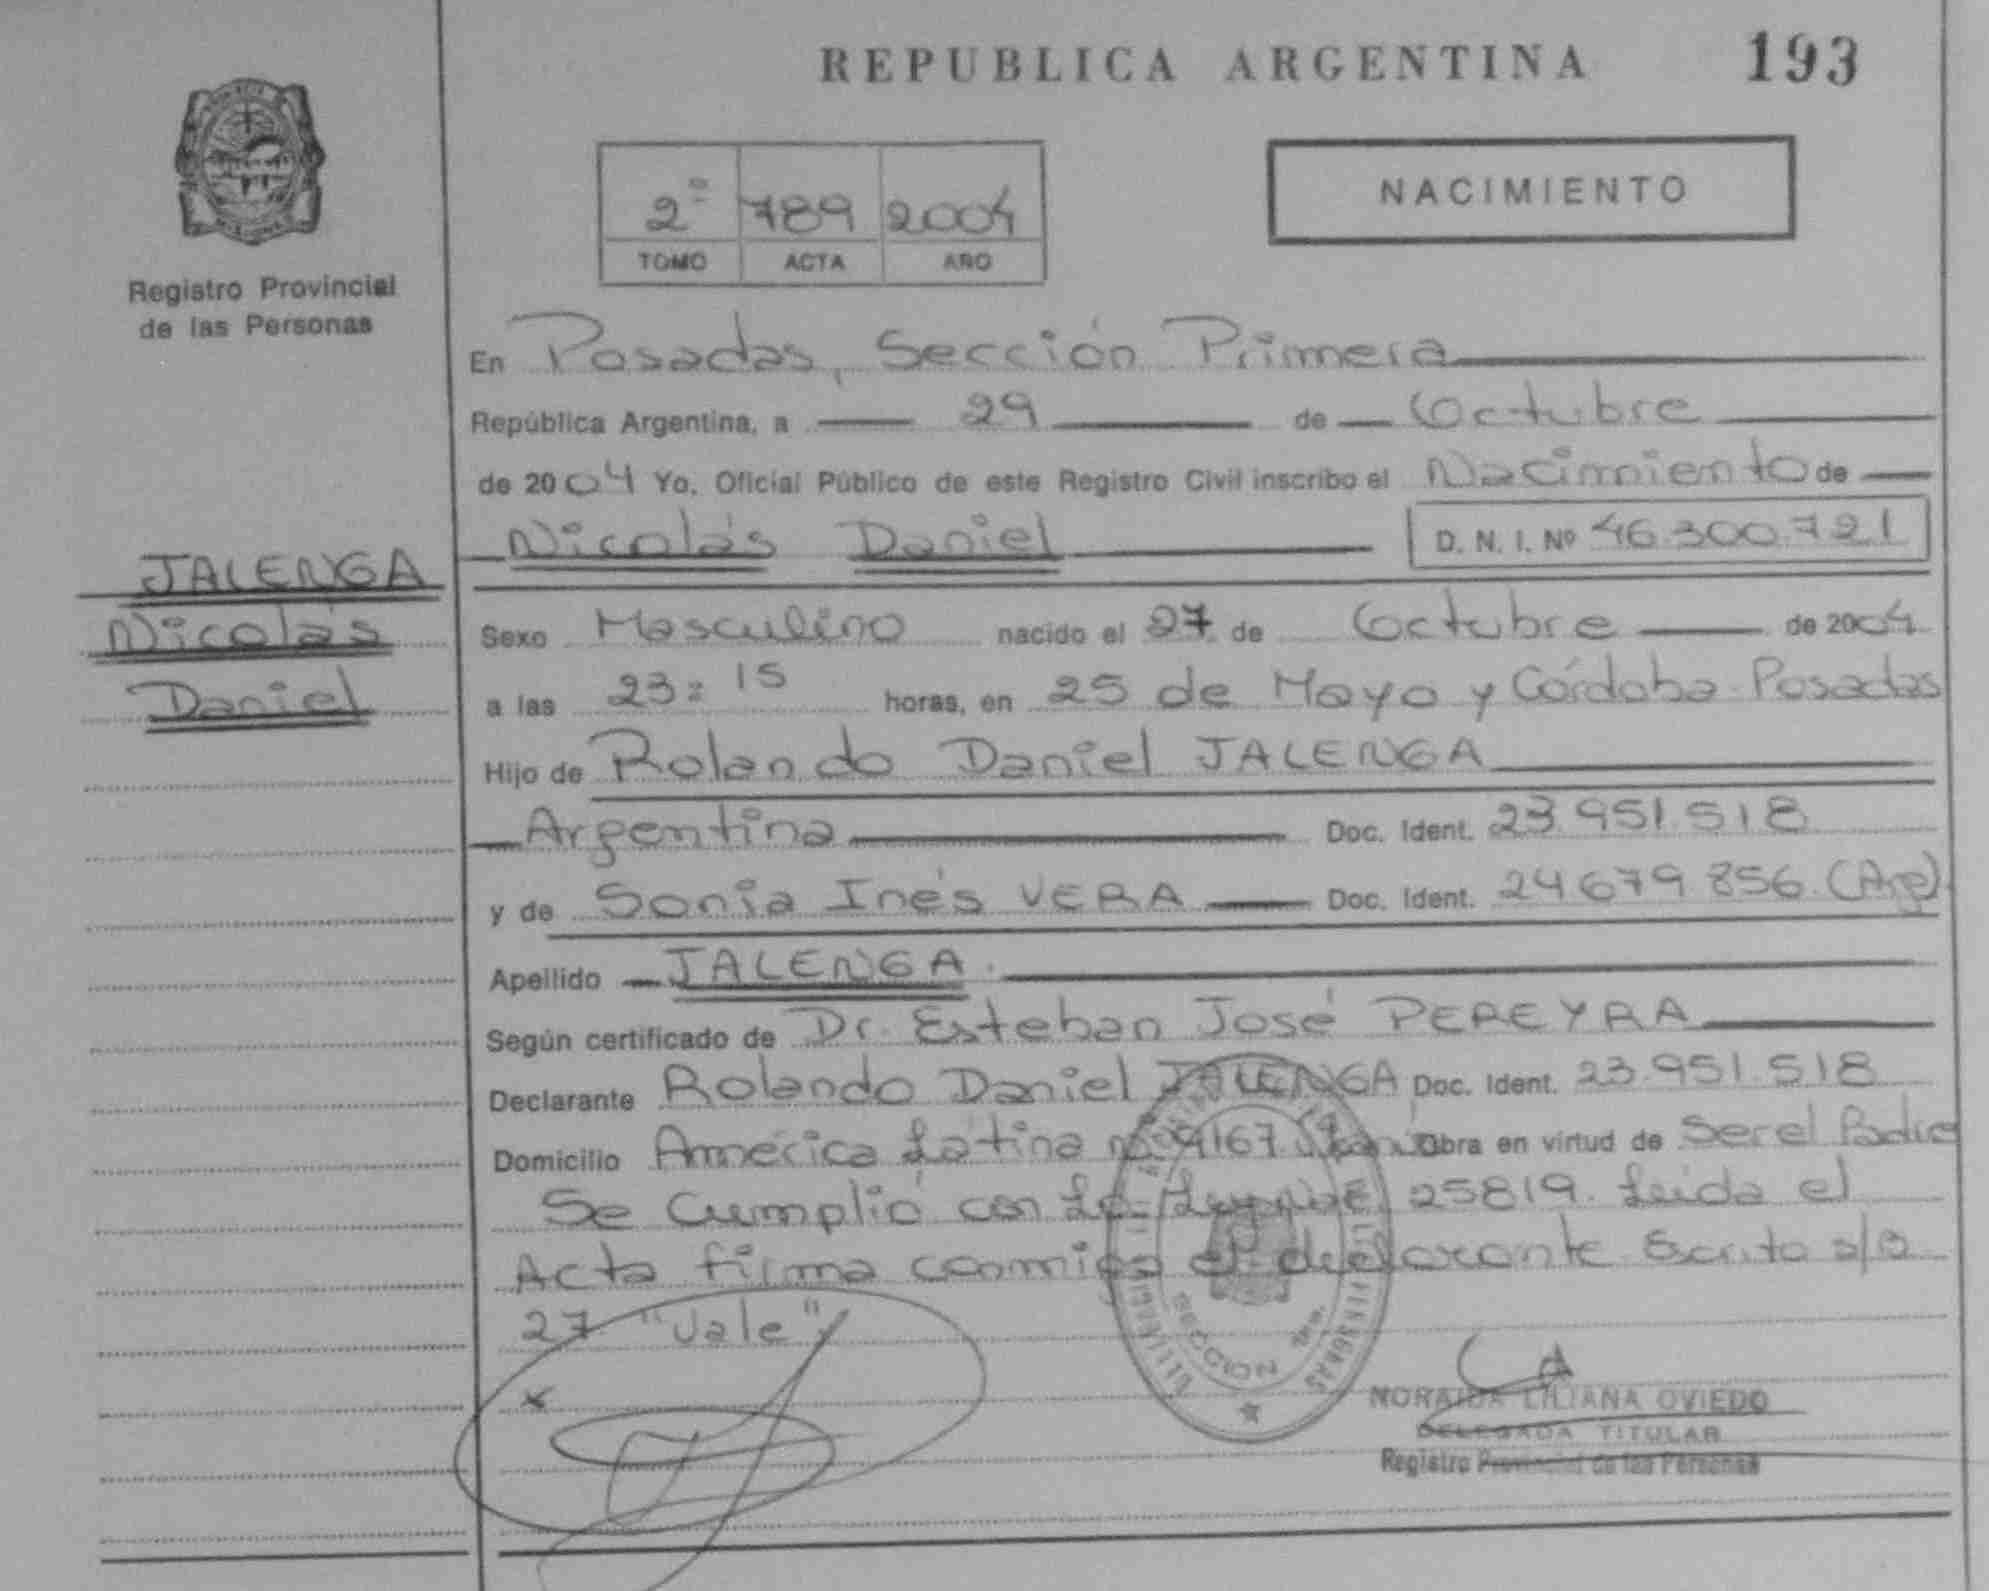 REPUBLICA ARGENTINA 193
Registro Provincial
de las Personas
2º 789 2004
TOMO ACTA AÑO
NACIMIENTO
En Posadas, Sección Primera
República Argentina, a 29 de Octubre
de 2004 Yo, Oficial Público de este Registro Civil inscribo el Nacimiento de
Nicolás Daniel D. N. I. Nº 46.300.721
JALENGA
Nicolás
Daniel
Sexo Masculino nacido el 27 de Octubre de 2004
a las 23:15 horas, en 25 de Mayo y Córdoba Posadas
Hijo de Rolando Daniel JALENGA
Argentina Doc. Ident. 23.951.518
y de Sonia Inés VERA Doc. Ident. 24.679.856 (Arg)
Apellido JALENGA
Según certificado de Dr. Esteban José PEREYRA
Declarante Rolando Daniel JALENGA Doc. Ident. 23.951.518
Domicilio América Latina nº 9167 Obra en virtud de Ser el Padre
Se Cumplió con 25819. Leida el
Acta firma conmigo el declarante Escrito s/o
27 "Vale"
SECCION 1ra.
PERSONAS
NORAIDA LILIANA OVIEDO
DELEGADA TITULAR
Registro Provincial de las Personas